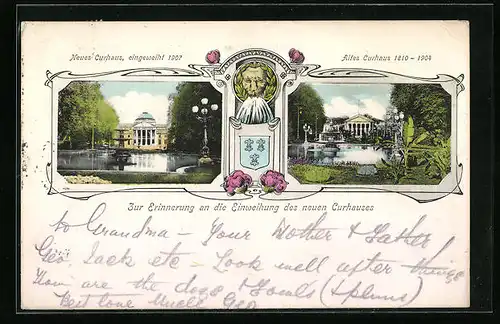 Neues Curhaus, eingeweiht 1907
Altes Curhaus 1810 - 1904
Zur Erinnerung an die Einweihung des neuen Curhauses
to Grandma - Your Mother & Father
Geo Jack etc - Look well after things
How are the dogs & Fowls (& plums)
Best love Uncle Geo